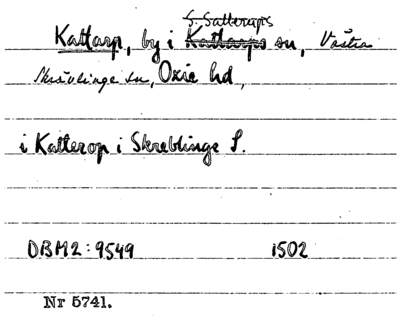 S. Sallerups
Kattarp, by i Kattarps sn, Västra
Skrävlinge sn, Oxie hd,
i Katterop i Skreblinge S.
DBM2:9549 1502
Nr 5741.